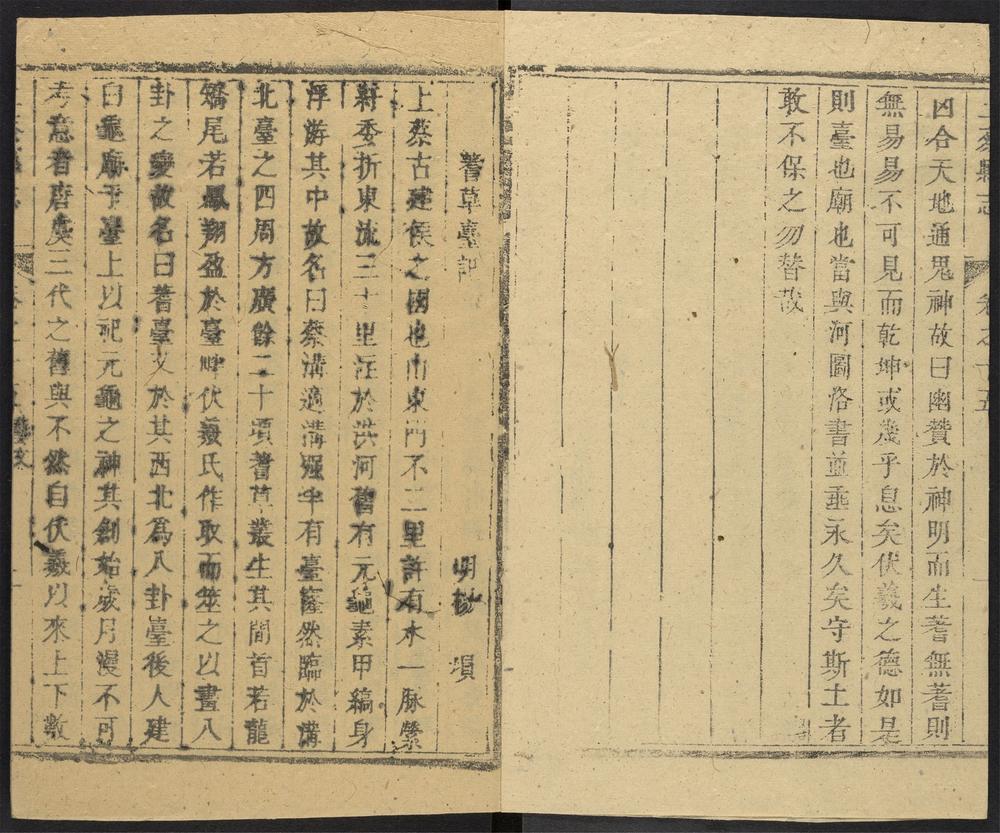 上蔡縣志 卷之十五
凶合天地通鬼神故曰幽贊於神明而生蓍無蓍則
無易易不可見而乾坤或幾乎息矣伏羲之德如是
則臺也廟也當與河圖洛書並垂永久矣守斯土者
敢不保之勿替哉
蓍草臺記 明 項
上蔡古建侯之國也由東門不二里許有水一脉縈
紆委折東流三十里汪於洪河舊有元龜素甲縞身
浮游其中故名曰蔡溝適溝 中有臺窿然臨於溝
北臺之四周方廣餘二十頃蓍草叢生其間首若龍
矯尾若鳳翔盈於臺畔伏羲氏作取而筮之以畫八
卦之變故名曰蓍臺又於其西北為八卦臺後人建
白龜廟于臺上以祀元龜之神其創始歲月漫不可
考意者唐虞三代之舊與不然自伏羲以來上下數